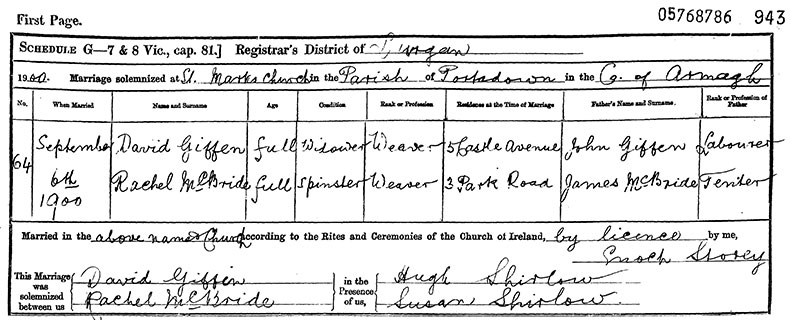 First Page. 05768786 943
SCHEDULE G—7 & 8 Vic., cap. 81.] Registrar's District of Lurgan
1900. Marriage solemnized at St. Marks Church in the Parish of Portadown in the Co. of Armagh
No. When Married Name and Surname Age Condition Rank or Profession Residences at the Time of Marriage Father's Name and Surname. Rank or Profession of Father
64 September 6th 1900 David Giffen full Widower Weaver 5 Castle Avenue John Giffen Labourer
Rachel McBride full Spinster Weaver 3 Park Road James McBride Tenter
Married in the above named Church according to the Rites and Ceremonies of the Church of Ireland, by licence by me,
Enoch Storey
This Marriage was solemnized between us David Giffen in the Presence of us, Hugh Shirlow
Rachel McBride Susan Shirlow.